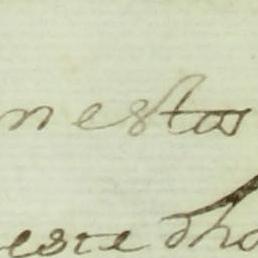 nestas
este dho